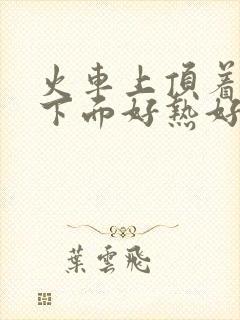 火車上頂着
下面好熱好
葉雲飛